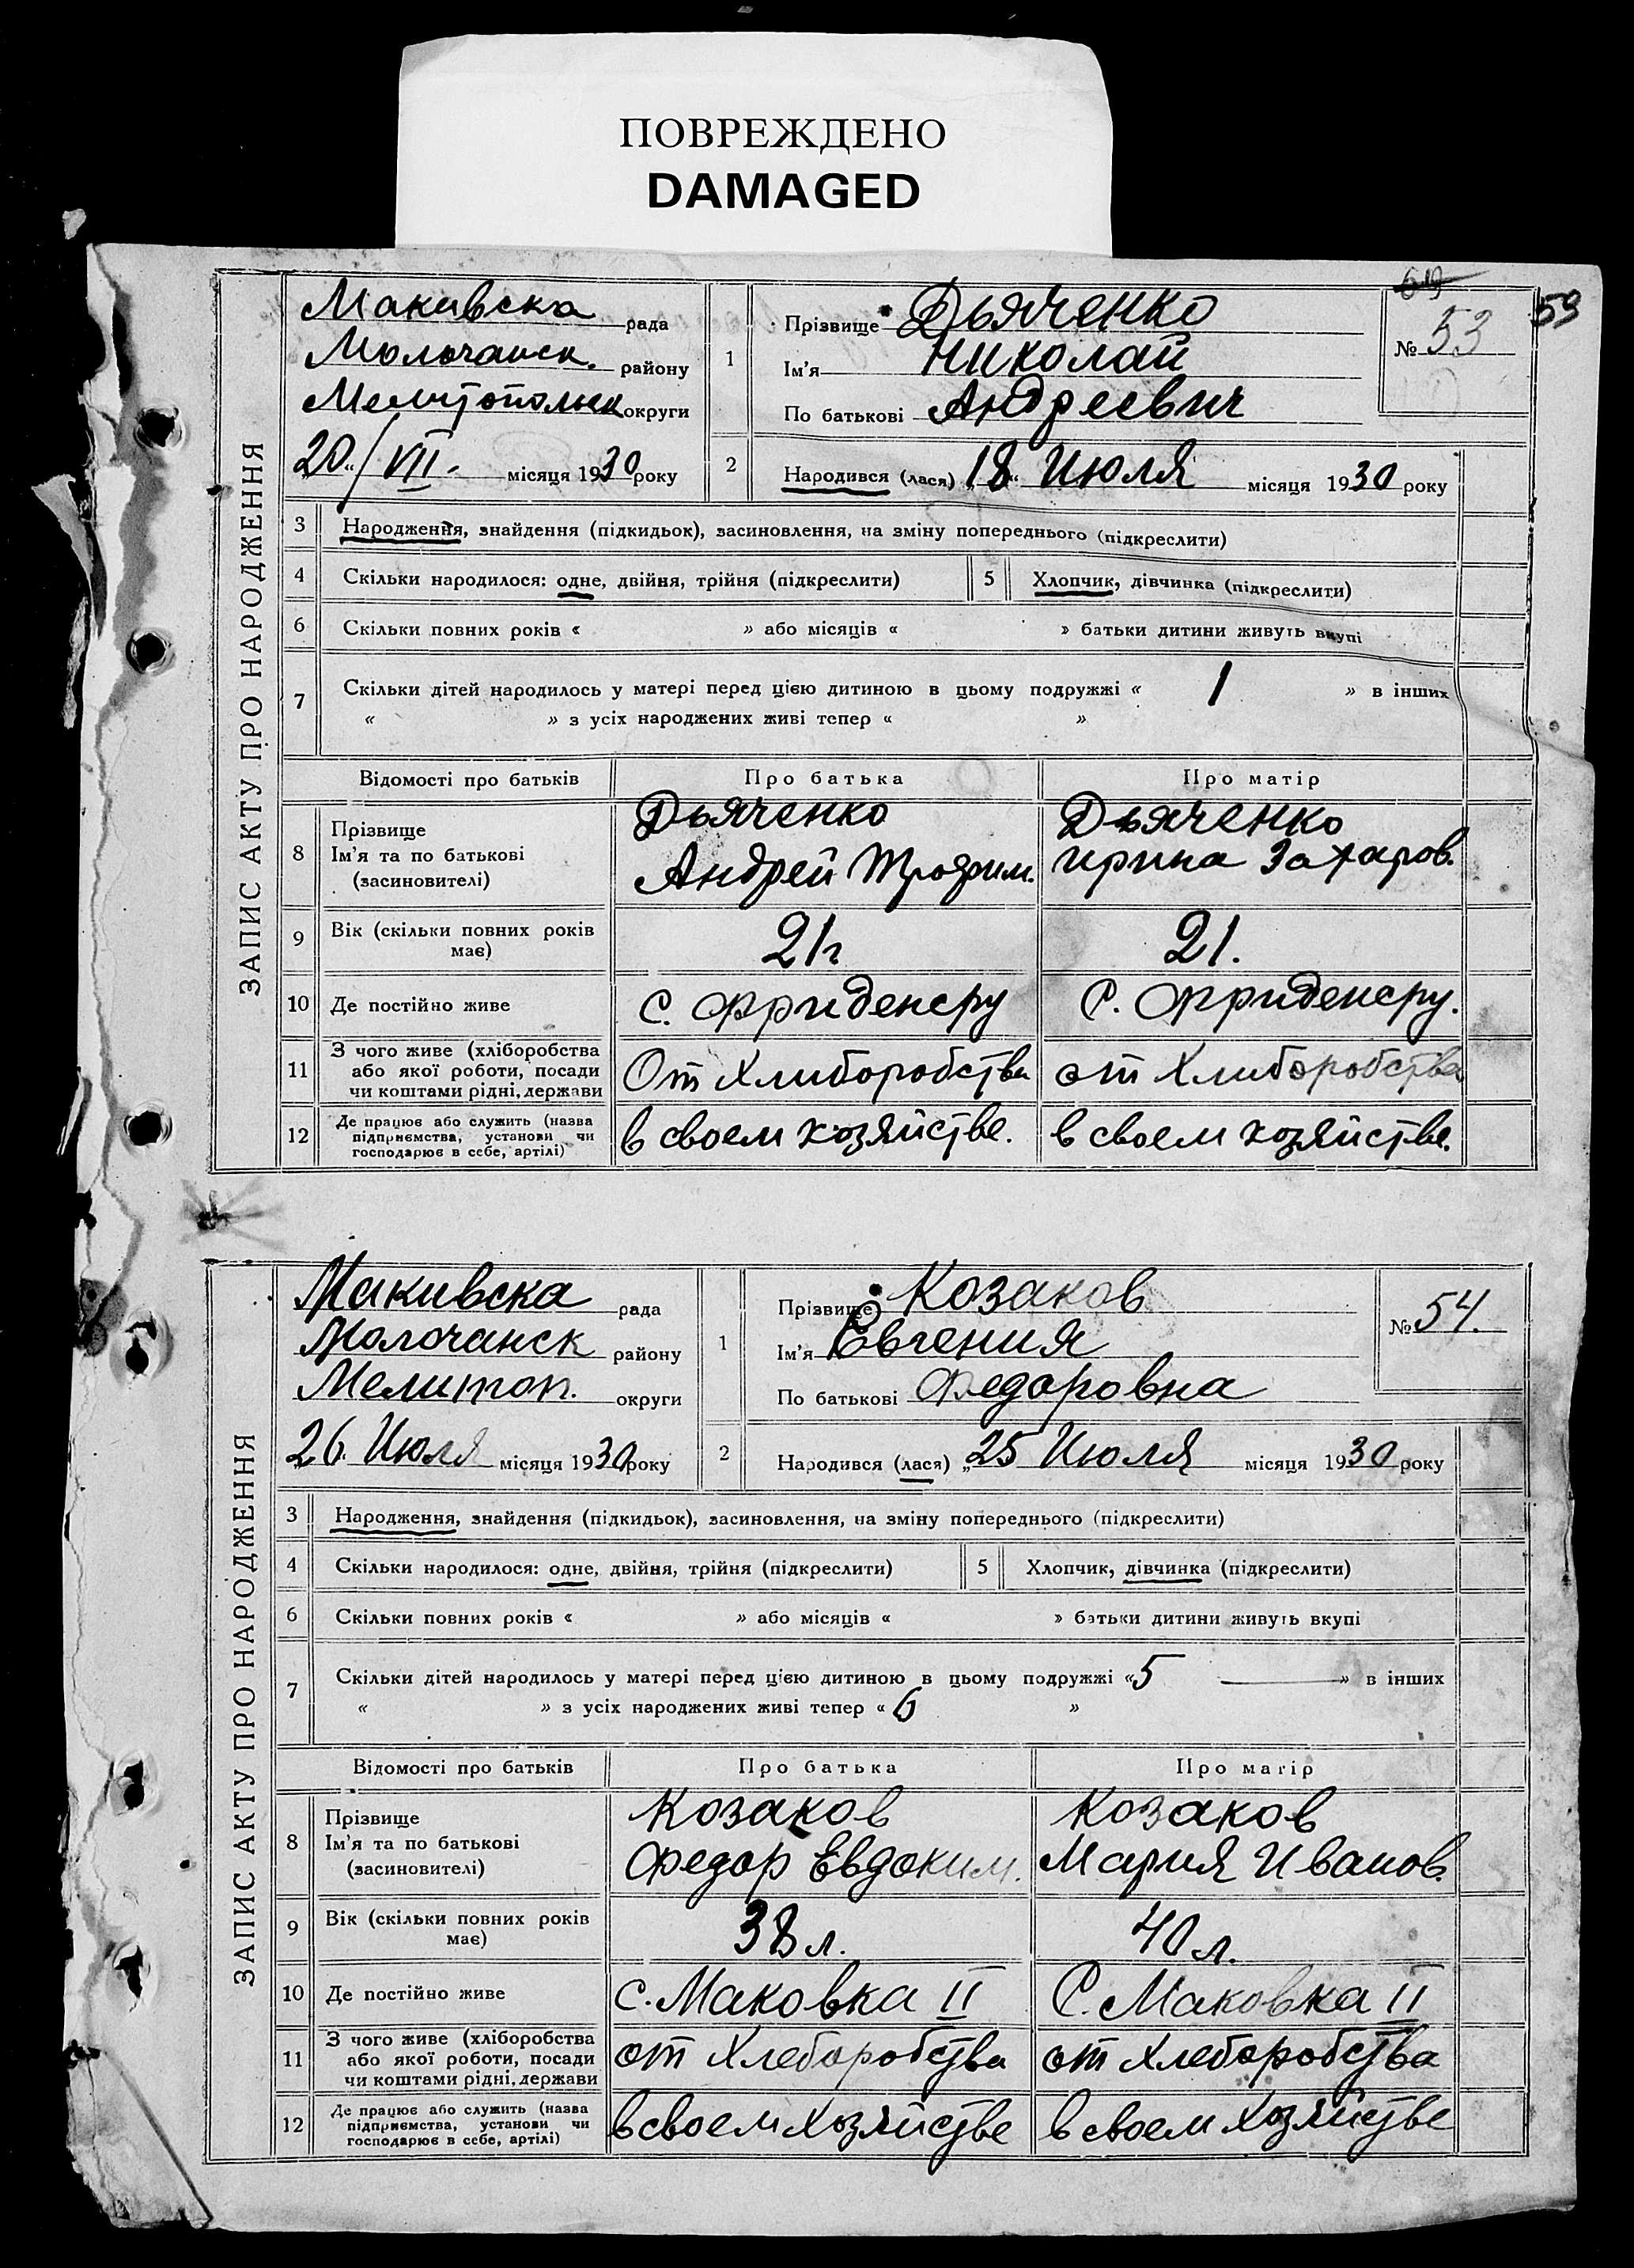 ПОВРЕЖДЕНО
DAMAGED
59
ЗАПИС АКТУ ПРО НАРОДЖЕННЯ
Макивска рада
Молочанск. району
Мелитопольск округи
20/VII. місяця 1930 року
1 Прізвище Дьяченко
Ім'я Николай
По батькові Андреевич
№ 53
2 Народився (лася) „18“ Июля місяця 1930 року
3 Народження, знайдення (підкидьок), засиновлення, на зміну попереднього (підкреслити)
4 Скільки народилося: одне, двійня, трійня (підкреслити) 5 Хлопчик, дівчинка (підкреслити)
6 Скільки повних років « » або місяців « » батьки дитини живуть вкупі
7 Скільки дітей народилось у матері перед цією дитиною в цьому подружжі « 1 » в інших
« » з усіх народжених живі тепер « »
Відомості про батьків Про батька Про матір
8 Прізвище Ім'я та по батькові (засиновителі)
Дьяченко Андрей Трофим.
Дьяченко Ирина Захаров.
9 Вік (скільки повних років має) 21г 21.
10 Де постійно живе с. Фриденсру С. Фриденсру.
11 З чого живе (хліборобства або якої роботи, посади чи коштами рідні, держави От Хлиборобства от Хлиборобства
12 Де працює або служить (назва підприємства, установи чи господарює в себе, артілі) в своем хозяйстве. в своем хозяйстве.
ЗАПИС АКТУ ПРО НАРОДЖЕННЯ
Макивска рада
Молочанск району
Мелитоп. округи
26. Июля місяця 1930 року
1 Прізвище Козаков
Ім'я Евгения
По батькові Федоровна
№ 54.
2 Народився (лася) „25 Июля місяця 1930 року
3 Народження, знайдення (підкидьок), засиновлення, на зміну попереднього (підкреслити)
4 Скільки народилося: одне, двійня, трійня (підкреслити) 5 Хлопчик, дівчинка (підкреслити)
6 Скільки повних років « » або місяців « » батьки дитини живуть вкупі
7 Скільки дітей народилось у матері перед цією дитиною в цьому подружжі «5 —» в інших
« » з усіх народжених живі тепер « 6 »
Відомості про батьків Про батька Про матір
8 Прізвище Ім'я та по батькові (засиновителі)
Козаков Федор Евдоким.
Козаков Мария Иванов.
9 Вік (скільки повних років має) 38 л. 40 л.
10 Де постійно живе с. Маковка II С. Маковка II
11 З чого живе (хліборобства або якої роботи, посади чи коштами рідні, держави от Хлеборобства от Хлеборобства
12 Де працює або служить (назва підприємства, установи чи господарює в себе, артілі) в своем хозяйстве в своем хозяйстве